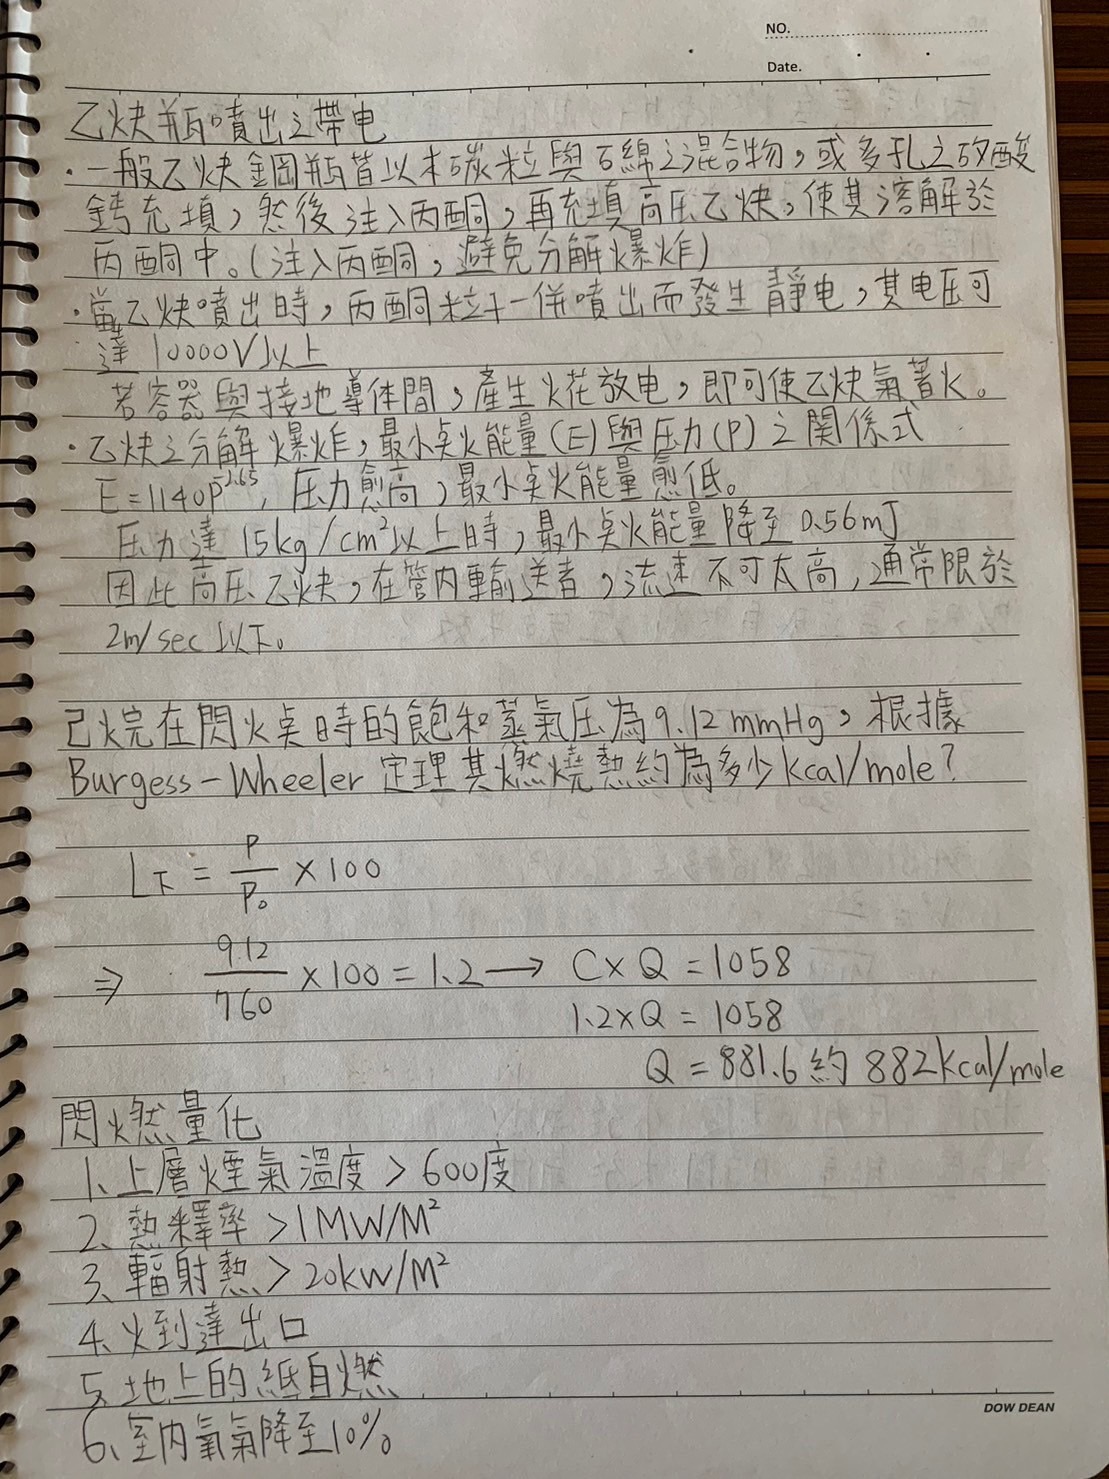 NO.
Date.
乙炔瓶噴出之帶电
·一般乙炔鋼瓶皆以木碳粒與石綿之混合物,或多孔之矽酸
鈣充填,然後注入丙酮,再充填高压乙炔,使其溶解於
丙酮中。(注入丙酮,避免分解爆炸)
·當乙炔噴出時,丙酮粒子一併噴出而發生靜电,其电压可
達10000V以上
若容器與接地導体間,產生火花放电,即可使乙炔氣著火。
·乙炔之分解爆炸,最小点火能量(E)與压力(P)之関係式
E=1140P^-2.65, 压力愈高,最小点火能量愈低。
压力達15kg/cm²以上時,最小点火能量降至0.56mJ
因此高压乙炔,在管内輸送者,流速不可太高,通常限於
2m/sec以下。
己烷在閃火点時的飽和蒸氣压為9.12mmHg,根據
Burgess-Wheeler定理其燃燒熱約為多少kcal/mole?
L下 = P/P₀ × 100
⇒ 9.12/760 × 100 = 1.2 → C×Q = 1058
1.2×Q = 1058
Q = 881.6 約 882kcal/mole
閃燃量化
1、上層煙氣溫度 > 600度
2、熱釋率 > 1MW/M²
3、輻射熱 > 20kW/M²
4、火到達出口
5、地上的紙自燃
6、室内氧氣降至10%
DOW DEAN